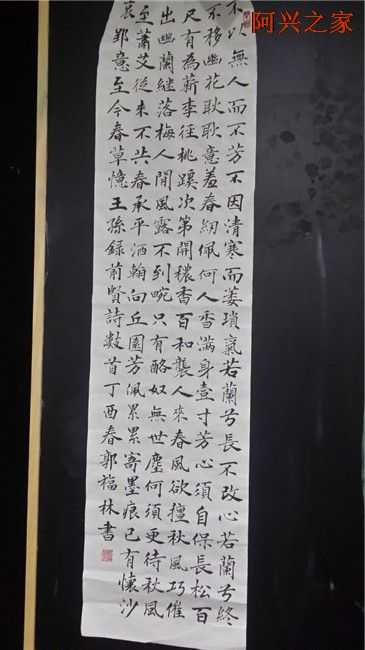 阿兴之家
不以無人而不芳不因清寒而萎瑣氣若蘭兮長不改心若蘭兮終
不移幽花耿耿意羞春紉佩何人香滿身壹寸芳心須自保長松百
尺有為薪李徑桃蹊次第開穠香百和襲人來春風欲擅秋風巧催
出幽蘭繼落梅人間風露不到畹只有酪奴無世塵何須更待秋風
至蕭艾從來不共春承平洒翰向丘園芳佩累累寄墨痕已有懷沙
哀郢意至今春草憶王孫録前賢詩數首丁酉春郭福林書